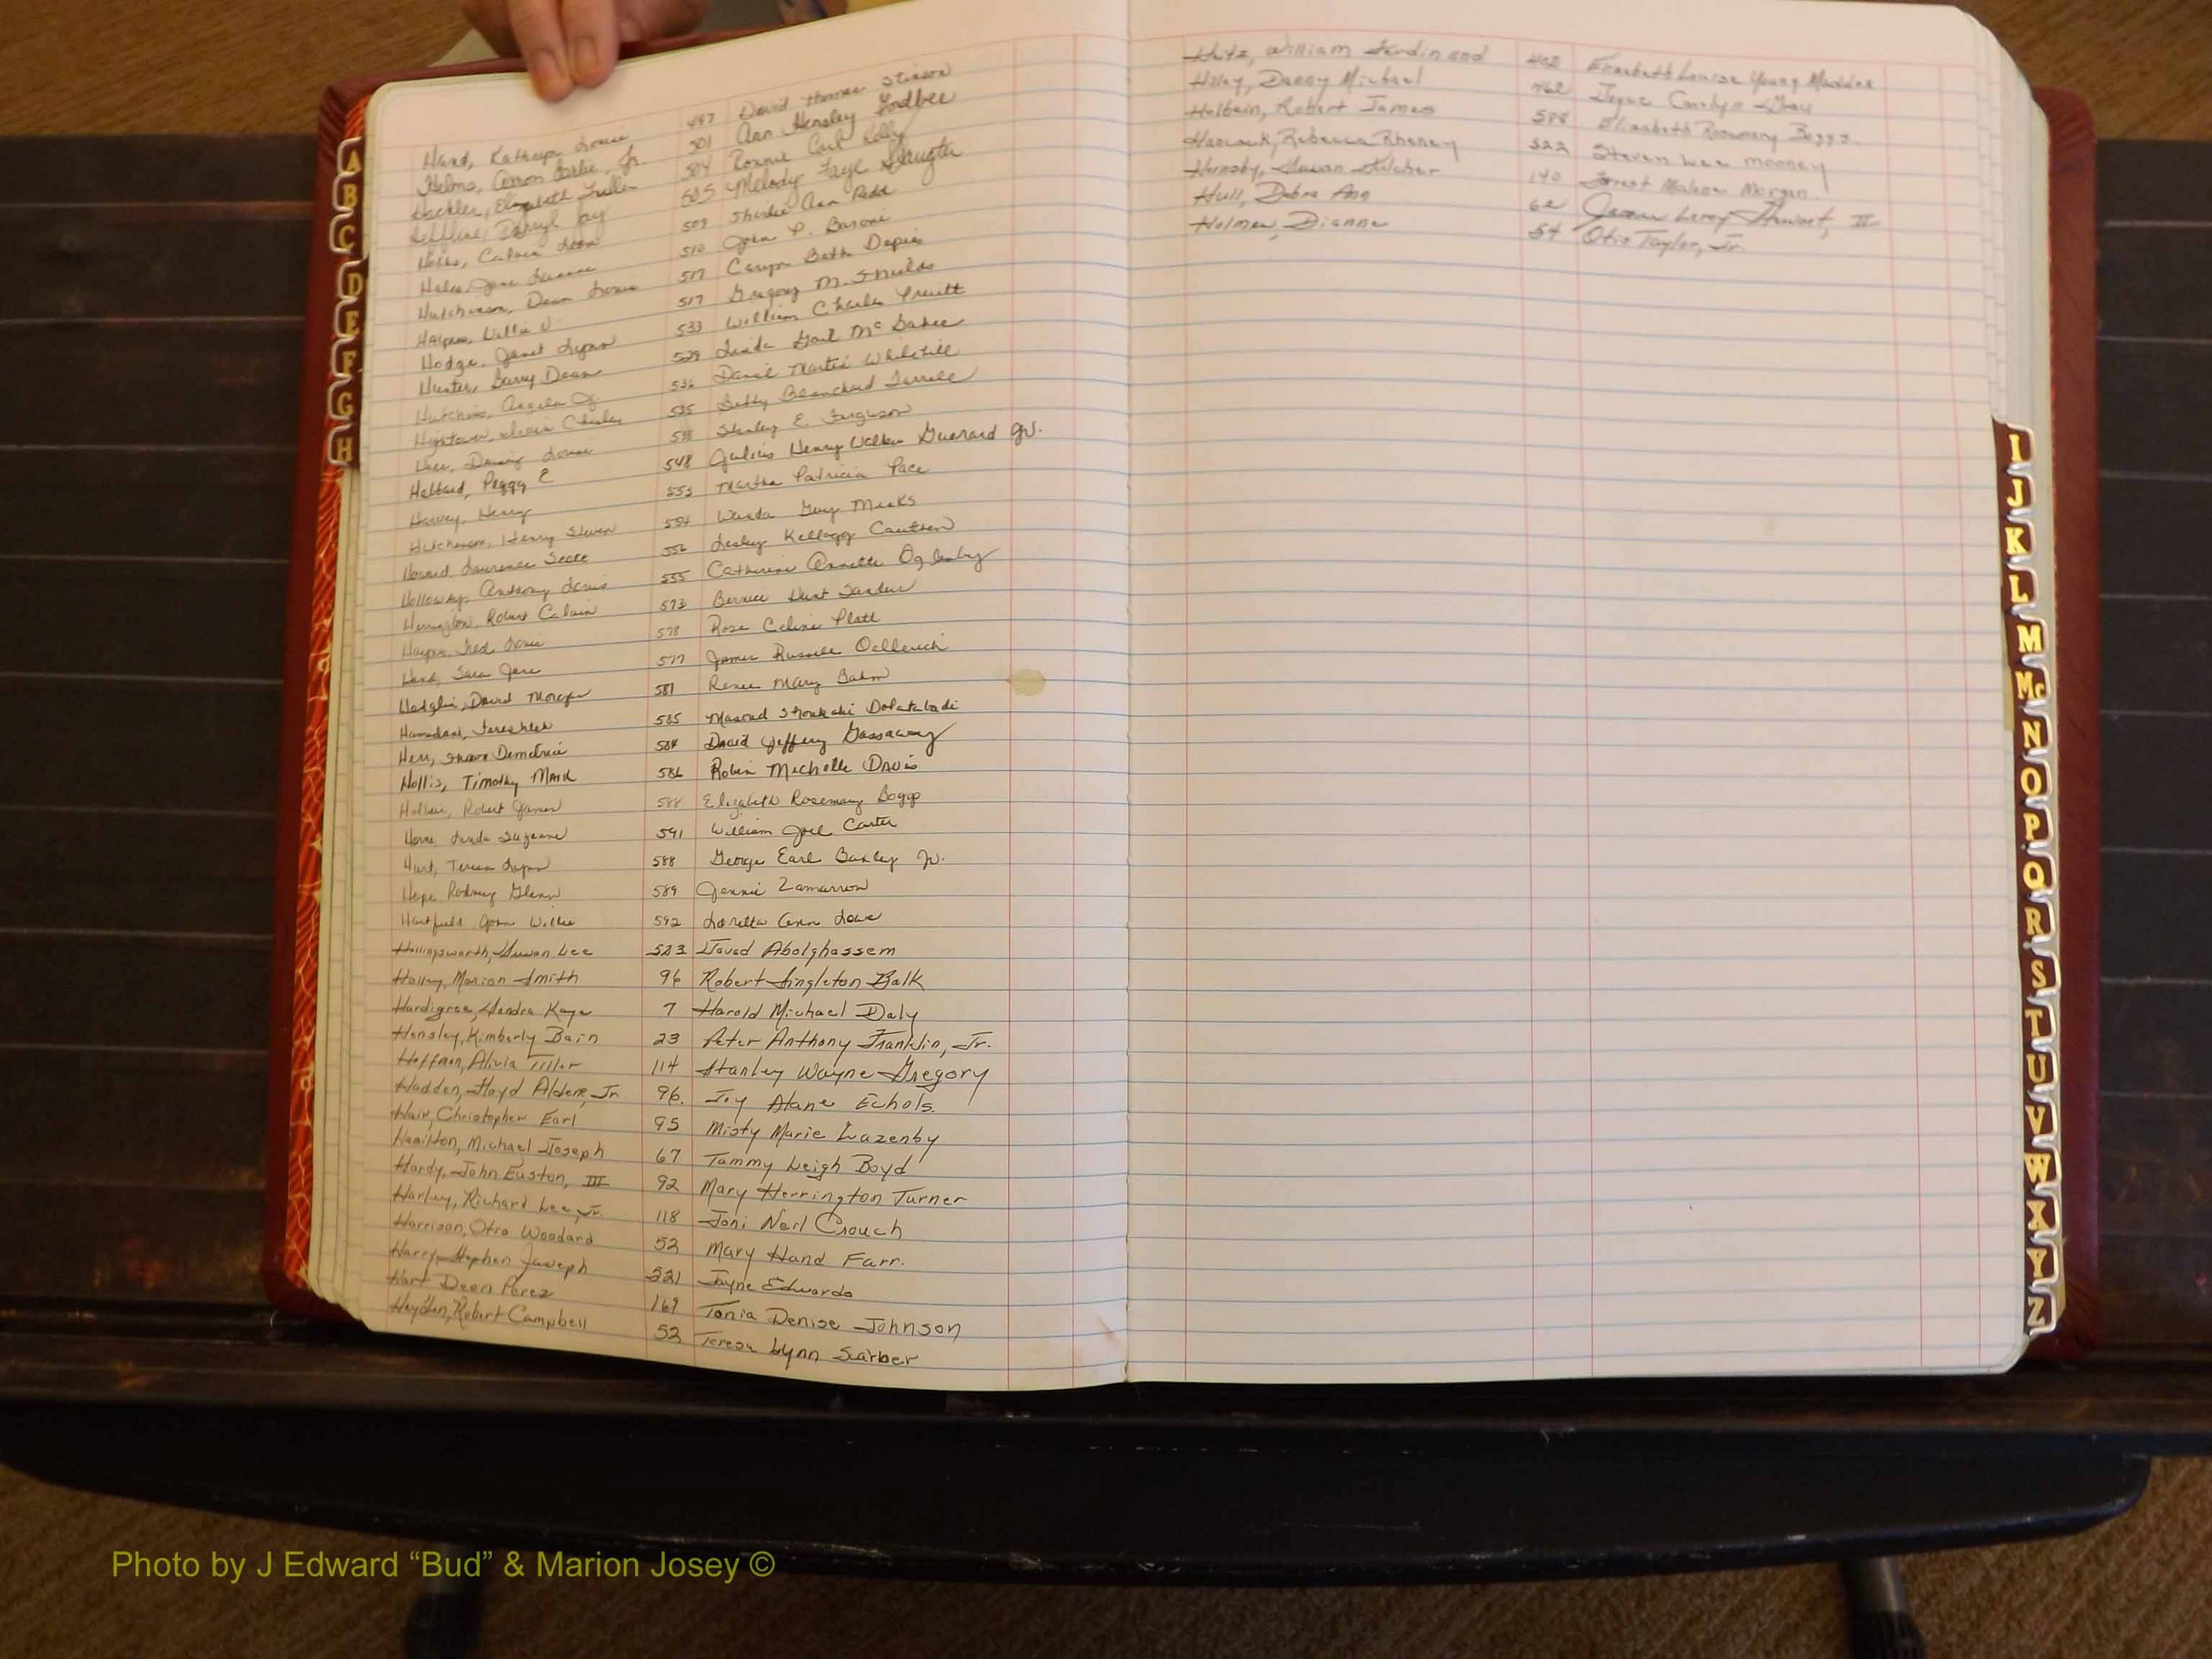 Hand, Kathryn Louise 497 David Thomas Stinson
Helms, Arron Earlie, Jr. 501 Ann Hensley Godbee
Heckler, Elizabeth Fuller 504 Ronnie Carl Kelly
Darryl Jay 505 Melody Faye
Hobbs, Calvin Leon 509 Shirlie Ann Redd
Hales, Jane 510 John P. Baroni
Hutchinson, Dean Louis 517 Carolyn Beth
Haynes, Willie V. 517 Gregory M. Shields
Hodge, Janet Lynn 533 William Charles Pruitt
Hunter, Barry Dean 529 Linda Gail McDaniel
Hutchins, Angela J. 536 Daniel Martin
Hightower, Chesley 535 Betty Blanchard Ferrell
Louise Stanley E. Ferguson
Hubbard, Peggy E 548 Julius Henry Walker Guerard IV.
Harvey, Henry 553 Martha Patricia Pace
Hutcheson, Henry Steven 554 Wanda Guy Meeks
Howard Lawrence Scott 556 Lesley Kellogg Cauthen
Holloway, Anthony Louis 555 Catherine Annette Oglesby
Herrington, Robert Calvin 573 Bernice Hunt
Harper, Fred Louis 578 Rose Celine Platt
Hand, Sara Jane 577 James Russell Oellerich
Hodglin, David Morgan 581 Renee Mary Bahm
Hamadani, Fereshteh 585 Masoud Shoukohi Dolatabadi
Herr, Shawn Demetrice 584 David Jeffery Gassaway
Hollis, Timothy Mark 586 Robin Michelle Davis
Holbein, Robert James 588 Elizabeth Rosemary Boggs
Horne, Linda Suzanne 591 William Joel Carter
Hurt, Teresa Lynn 588 George Earl Baxley Jr.
Hope, Rodney Glenn 589 Jennie Zamarron
Hartfield John Willie 592 Loretta Ann Lowe
Hollingsworth, Susan Lee 523 Javad Abolghassem
Holley, Marion Smith 96 Robert Singleton Balk
Hardigree, Sandra Kaye 7 Harold Michael Daly
Hensley, Kimberly Bain 23 Peter Anthony Franklin, Jr.
Hoffman, Alivia Tiller 114 Stanley Wayne Gregory
Hadden, Floyd Aldene, Jr 96. Joy Alane Echols.
Hair, Christopher Earl 95 Misty Marie Lazenby
Hamilton, Michael Joseph 67 Tammy Leigh Boyd
Hardy, John Euston, III 92 Mary Herrington Turner
Harley, Richard Lee, Jr. 118 Joni Neil Crouch
Harrison, Otro Woodard 52 Mary Hand Farr.
Harry, Stephen Joseph 221 Jayne Edwards
Hart Deon Perez 169 Tonia Denise Johnson
Hayden, Robert Campbell 52 Teresa Lynn Scarber
Hutz, William Ferdinand 402 Elizabeth Louise Young Maddox
Hiley, Danny Michael 462 Joyce Carolyn Gray
Holbein, Robert James 588 Elizabeth Rosemary Boggs.
Hancock, Rebecca Rheney 522 Steven Lee Mooney
Hornsby, Susan Fulcher 140 Forrest Malone Morgan
Hull, Debra Ann 62 James Leroy Stewart, II
Holmes, Dianne 54 Otis Taylor, Jr.
A
B
C
D
E
F
G
H
I
J
K
L
M
Mc
N
O
P
Q
R
S
T
U
V
W
X
Y
Z
Photo by J Edward “Bud” & Marion Josey ©